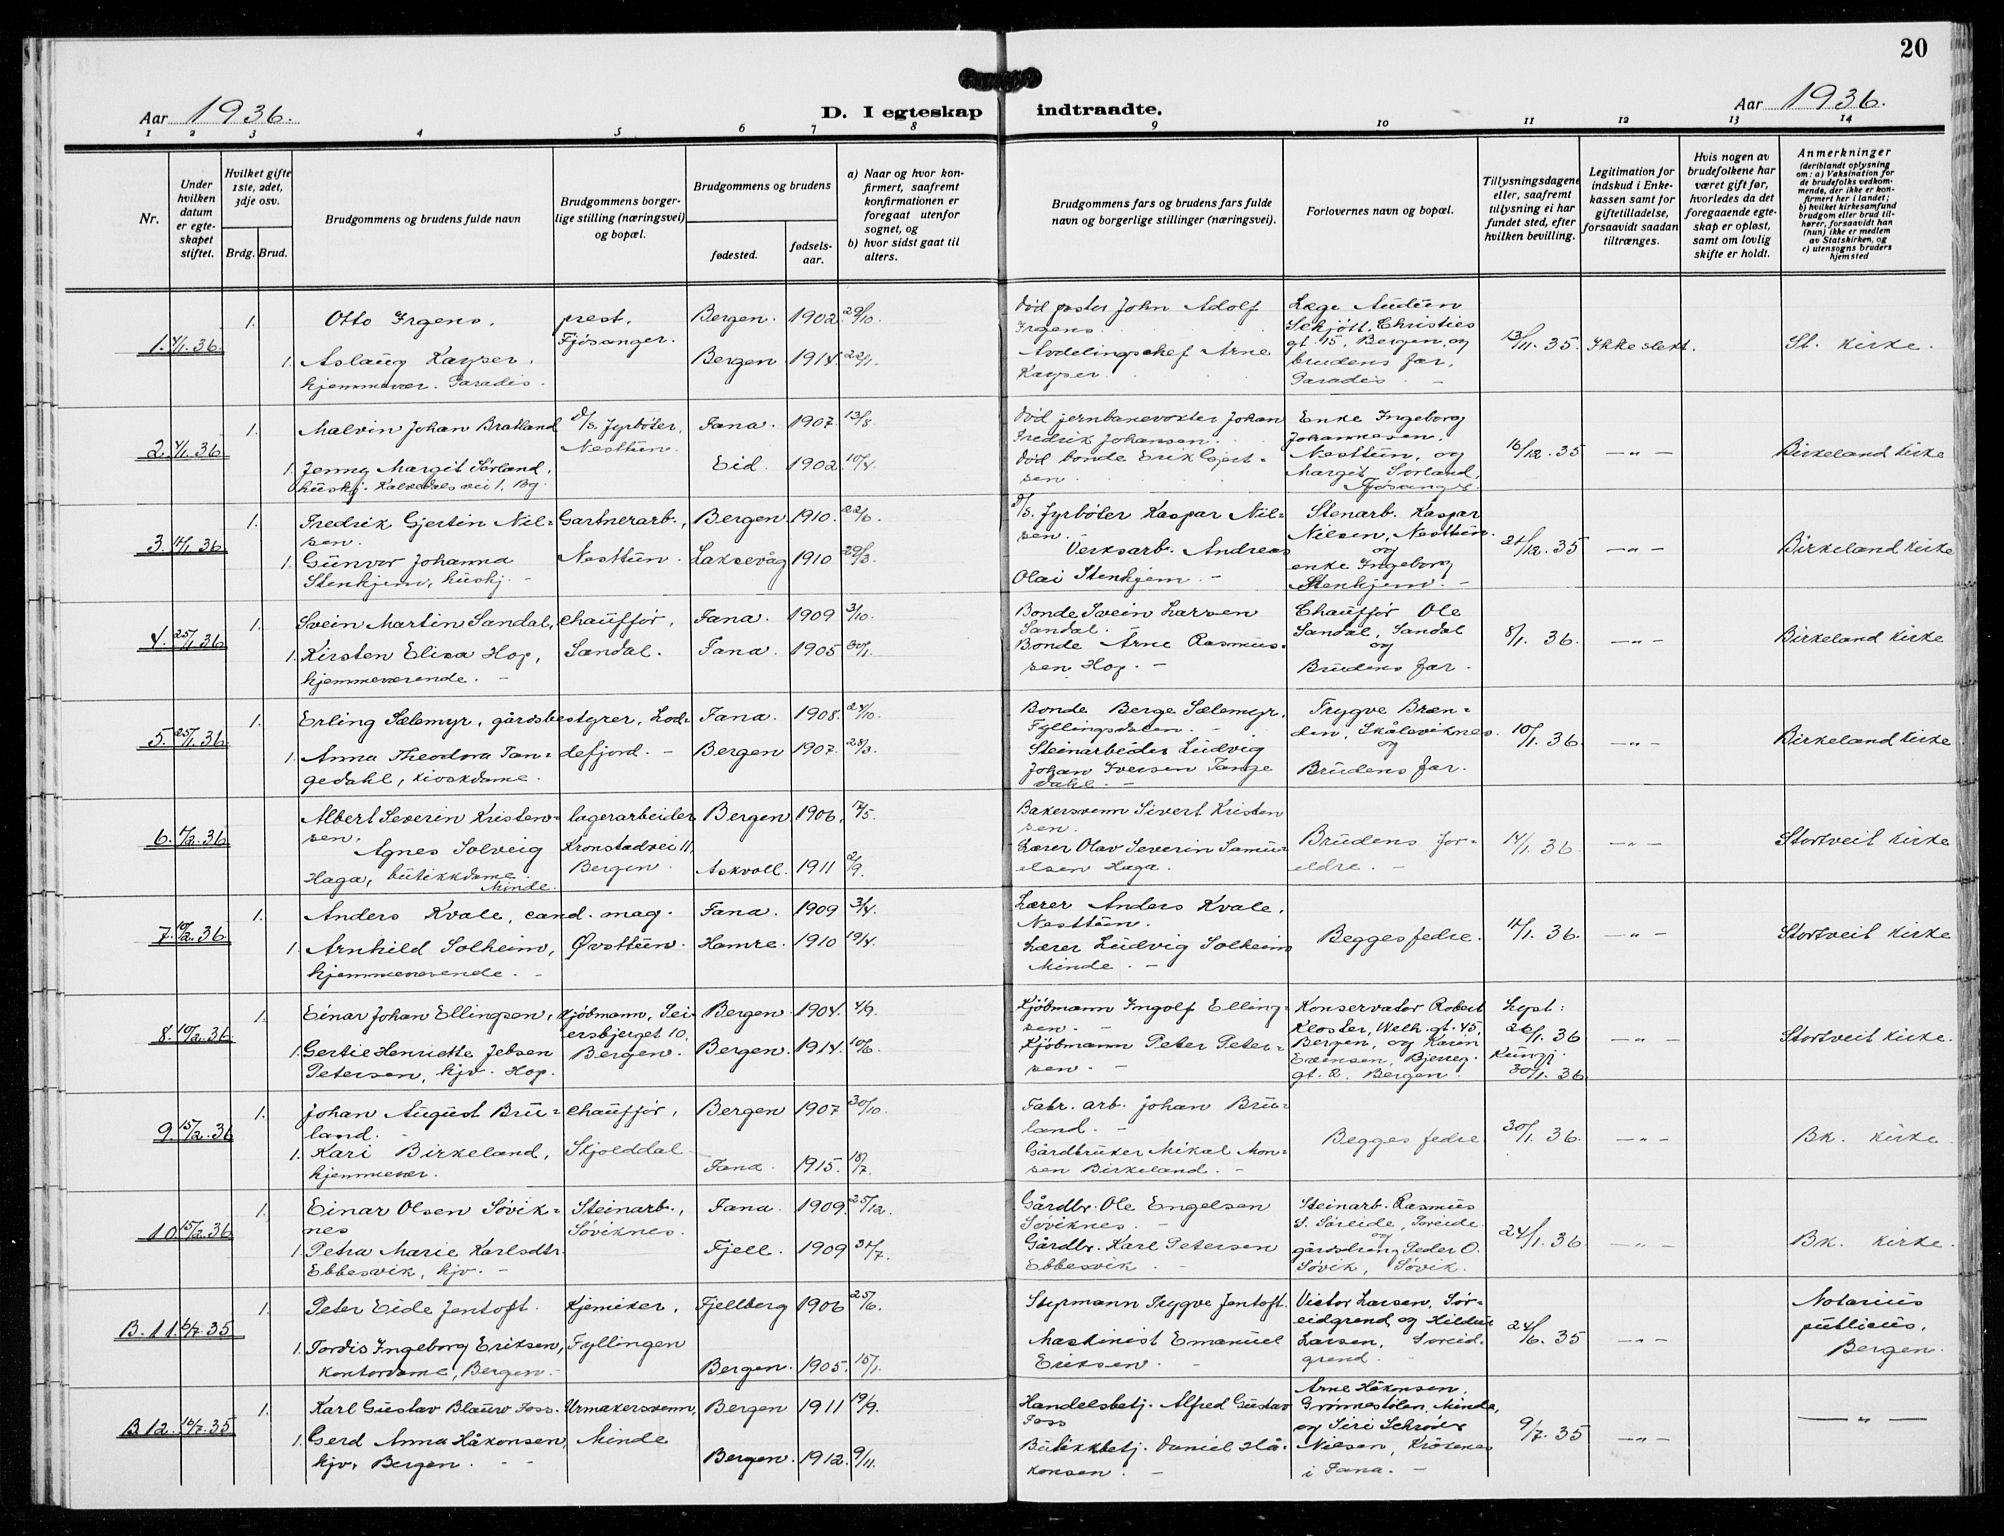 20
Aar 1936.
D. I egteskap indtraadte.
Aar 1936.
1 2 3 4 5 6 7 8 9 10 11 12 13 14
Nr.
Under hvilken datum er egteskapet stiftet.
Hvilket gifte 1ste, 2det, 3dje osv.
Brdg. Brud.
Brudgommens og brudens fulde navn
Brudgommens borgerlige stilling (næringsvei) og bopæl.
Brudgommens og brudens
fødested.
fødselsaar.
a) Naar og hvor konfirmert, saafremt konfirmationen er foregaat utenfor sognet, og
b) hvor sidst gaat til alters.
Brudgommens fars og brudens fars fulde navn og borgerlige stillinger (næringsvei).
Forlovernes navn og bopæl.
Tillysningsdagene eller, saafremt tillysning ei har fundet sted, efter hvilken bevilling.
Legitimation for indskud i Enkekassen samt for giftetilladelse, forsaavidt saadan tiltrænges.
Hvis nogen av brudefolkene har været gift før, hvorledes da det foregaaende egteskap er opløst, samt om lovlig skifte er holdt.
Anmerkninger
(deriblandt oplysning om: a) Vaksination for de brudefolks vedkommende, der ikke er konfirmert her i landet; b) hvilket kirkesamfund brudgom eller brud tilhører, forsaavidt han (hun) ikke er medlem av Statskirken, og c) utensogns bruders hjemsted
1. 4/1.36 1. Otto Irgens, prest, Bergen. 1902. 29/10. Død pastor John Adolf Irgens. Læge Audun Schjött, Christies gt. 15, Bergen, og brudens far, Paradis. 13/11.35. Ikke slekt. St. kirke.
1. Aslaug Kayser, hjemmevær. Paradis. Fjøsanger. Bergen 1914. 22/11. Avdelingschef Arne Kayser.
2. 4/1.36 1. Malvin Johan Bratland d/s. fyrbøter, Nesttun. Fana. 1907. 13/8. Død jernbanevokter Johan Fredrik Johansen. Enke Ingeborg Johannesen, Nesttun, og Margit Sørland, Fjøsanger. 16/12.35 —"— Birkeland kirke
1. Jenny Margit Sørland, hushj. Kalvedalsvei 1. Bg. Eid. 1902. 10/4. Død bonde Erik Gjertsen.
3. 11/1.36 1. Fredrik Gjertin Nilsen. Gartnerarb., Bergen 1910. 22/6. d/s. fyrbøter Kaspar Nilsen. Stenarb. Kaspar Nilsen, Nesttun. og enke Ingeborg Stenhjem. 21/12.35 —"— Birkeland kirke
1. Gunvor Johanna Stenhjem, hushj. Nesttun. Laksevåg 1910 29/3. Verksarb. Andreas Olai Stenhjem.
4. 25/1.36 1. Svein Martin Sandal, chauffør, Fana. 1909 3/10. Bonde Svein Larsen Sandal. Chauffør Ole Sandal, Sandal og Brudens far. 8/1.36. —"— Birkeland kirke
1. Kirsten Elisa Hop, hjemmeværende. Sandal. Fana. 1905 30/1. Bonde Arne Rasmussen Hop.
5. 25/1.36 1. Erling Sælemyr, gårdsbestyrer, Lod- Fana. 1908. 24/10. Bonde Berge Sælemyr, Fyllingsdalen. Trygve Brænden, Skåleviknes. og Brudens far. 10/1.36 —"— Birkeland kirke
1. Anna Theodora Tangedahl, kioskdame. defjord. Bergen 1907. 28/3. Steinarbeider Ludvig Johan Iversen Tangedahl.
6. 1/2.36 1. Albert Severin Kristensen. lagerarbeider Kronstadvei 11, Bergen. Bergen 1906. 17/5. Bakersvenn Sivert Kristensen. Brudens foreldre. 14/1.36 —"— Stortveit kirke
1. Agnes Solveig Haga, butikkdame Minde. Askvoll. 1911 2/9. Lærer Olav Severin Samuelsen Haga.
7. 10/2.36. 1. Anders Kvale, cand. mag. Fana. 1909 3/4. Lærer Anders Kvale, Nesttun. Begges fedre. 11/1.36. —"— Stortveit kirke
1. Arnhild Solheim, hjemmeværende. Øvsttun. Hamre. 1910 19/4. Lærer Ludvig Solheim Minde.
8. 10/2.36 1. Einar Johan Ellingsen, Kjøbmann, Seiersbjerget 10, Bergen. Bergen. 1904. 4/9. Kjøbmann Ingolf Ellingsen. Konservator Robert Kloster, Welh. gt. 45, Bergen, og Karin Evensen, Bjerreg. gt. 2. Bergen. Lyst: 26/1.36 Kungj. 30/1.36 —"— Stortveit kirke.
1. Gertie Henriette Jebsen Petersen, hjv. Hop. Bergen. 1914. 10/6. Kjøbmann Peter Petersen.
9. 15/2.36 1. Johan August Bruland. chauffør, Skjolddal. Bergen 1907 30/10. Fabr. arb. Johan Bruland. Begges fedre. 30/1.36. —"— Bk. kirke.
1. Kari Birkeland, hjemmevær. Fana. 1915. 18/7. Gårdbruker Mikal Monsen Birkeland.
10. 15/2.36 1. Einar Olsen Søviknes Steinarb., Søviknes. Fana. 1909. 25/12. Gårdbr. Ole Engelsen Søviknes. Steinarb. Rasmus S. Søreide, Søreide. og gårdsdreng Peder O. Søvik, Søvik. 24/1.36 —"— Bk. kirke.
1. Petra Marie Karlsdtr. Ebbesvik, hjv. Fjell. 1909 31/7. Gårdbr. Karl Petersen Ebbesvik.
B. 11. 6/7.35 1. Peter Eide Jentoft. Kjemiker, Fjellberg 1906 25/6. Styrmann Trygve Jentoft. Victor Larsen, Søreidgrend og Hildur Larsen, Søreidgrend. 24/6.35 —"— Notarius publicus, Bergen.
1. Tordis Ingeborg Eriksen, kontordame, Bergen. Fyllingen Bergen. 1905. 15/1. Maskinist Emanuel Eriksen.
B. 12. 16/7.35 1. Karl Gustav Blauw Foss. Urmakersvenn, Bergen 1911 19/9. Handelsbetj. Alfred Gustav Foss Arne Håkonsen, Grønnestølen, Minde, og Siri Schrøder Nielsen, Kråkenes i Fana. 9/7.35 —"— —"—
1. Gerd Anna Håkonsen, hjv. Bergen. Minde Bergen. 1912. 9/11. Butikkbetj. Daniel Håkonsen.